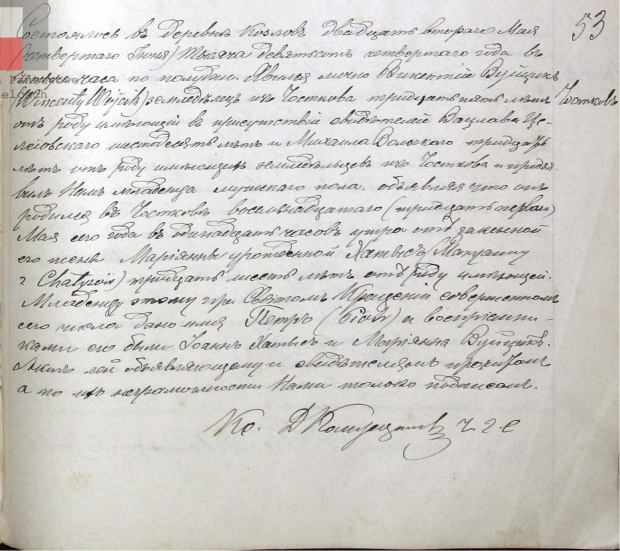 Состоялось въ деревнѣ Козловѣ двадцать втораго Мая
53
(четвертаго Іюня) тысяча девятьсотъ четвертаго года въ
часа по полудни. Явился лично Викентій Вуйцикъ
(Wincenty Wójcik) земледѣлецъ изъ Чосткова тридцать лѣтъ
Чостковъ
отъ роду имѣющій въ присутствіи свидѣтелей Вацлава
шестидесяти лѣтъ и Михаила тридцать
лѣтъ отъ роду имѣющихъ земледѣльцевъ изъ Чосткова и предъя-
вилъ Намъ младенца мужскаго пола, объявляя что онъ
родился въ Чостковѣ восемьнадцатаго (тридцать перваго)
Мая сего года въ одинадцать часовъ утра отъ законной
его жены Маріанны урожденной Хатысъ (Maryanny
z) тридцать шесть лѣтъ отъ роду имѣющей.
Младенцу этому при Святомъ Крещеніи совершенномъ
сего числа дано имя Петръ (Piotr) а воспріемни-
ками его были Іоаннъ Хатысъ и Маріянна Вуйцикъ.
Актъ сей объявляющему и свидѣтелямъ прочитанъ
а по ихъ неграмотности Нами только подписанъ.
Кс.